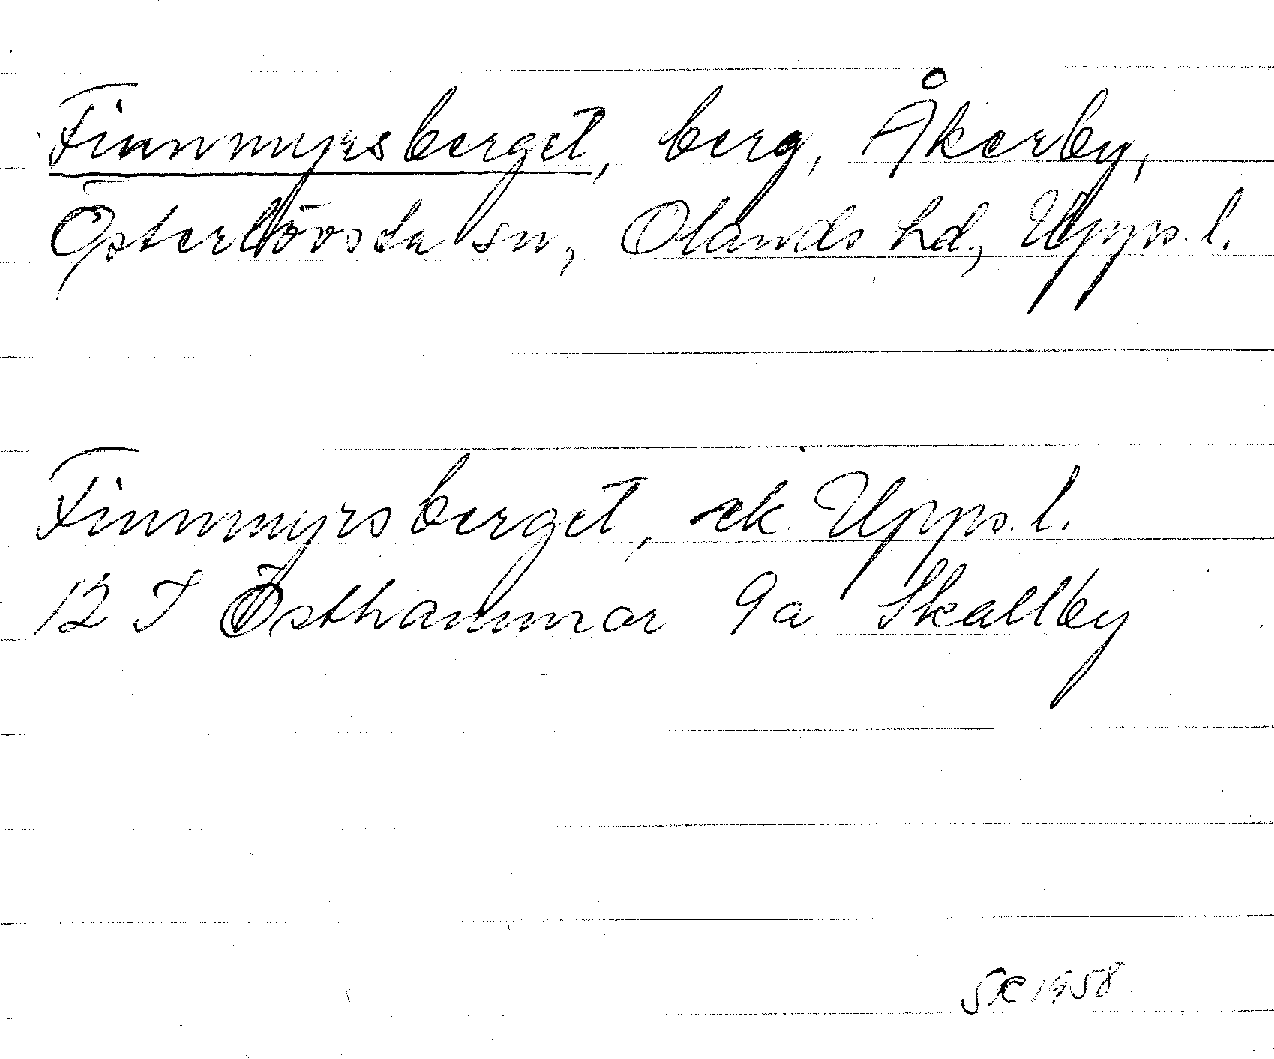 Finnmyrsberget, berg, Åkerby,
Österlövsta sn, Olands hd, Uppl.
Finnmyrsberget, ek. Uppl.
12 I Östhammar 9a Skallby
SR 1958